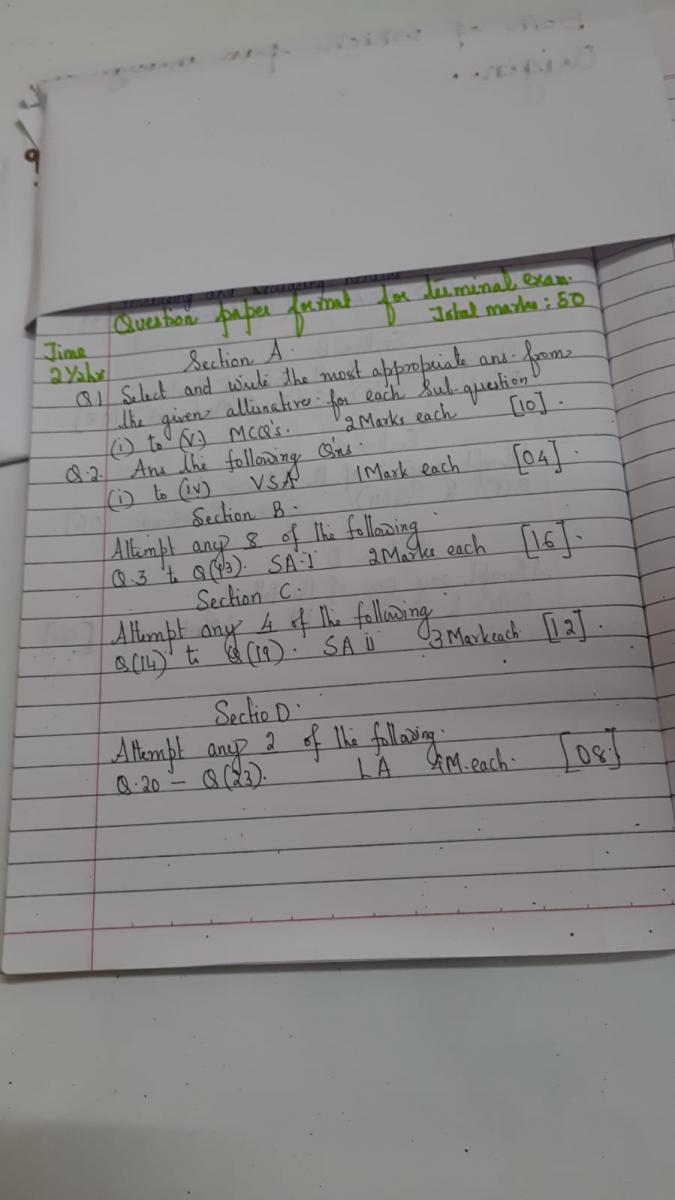 Question paper format for terminal exam.
Time Total marks : 50
2½hr Section A.
Q.1 Select and write the most appropriate ans. from
the given alternative for each Sub-question
(i) to (v) MCQ's. 2Marks each [10].
Q.2. Ans the following Q'ns.
(i) to (iv) VSA 1Mark each [04].
Section B.
Attempt any 8 of the following
Q.3 to Q(13). SA-I 2Marks each [16].
Section C.
Attempt any 4 of the following
Q(14) to Q(19). SA II 3Mark each [12].
Sectio D.
Attempt any 2 of the following.
Q.20 – Q(23). LA 4M.each. [08]